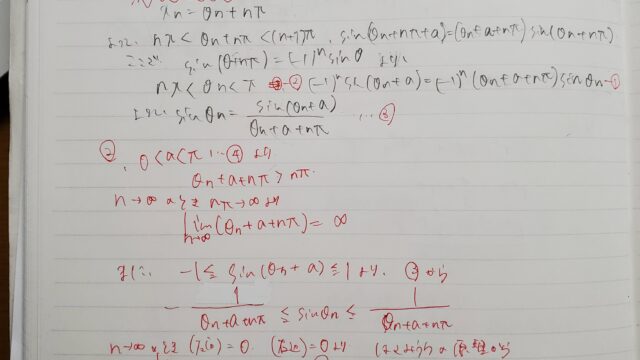 xn = θn + nπ
より、nπ < θn + nπ < (n+1)π, sin(θn+nπ+a) = (θn+a+nπ) sin(θn+nπ)
ここで sin(θ+nπ) = (-1)ⁿ sinθ より
< θn < π ② (-1)ⁿ sin(θn+a) = (-1)ⁿ (θn+a+nπ) sinθn ①
よって sinθn = sin(θn+a) / (θn+a+nπ) … ③
②, 0 < a < π … ④ より
θn + a + nπ > nπ.
n→∞ のとき nπ→∞ より
lim n→∞ (θn+a+nπ) = ∞
また -1 ≦ sin(θn+a) ≦ 1 より, ③ から
- 1/(θn+a+nπ) ≦ sinθn ≦ 1/(θn+a+nπ)
n→∞ のとき (左辺) = 0. (右辺) = 0 より はさみうちの から